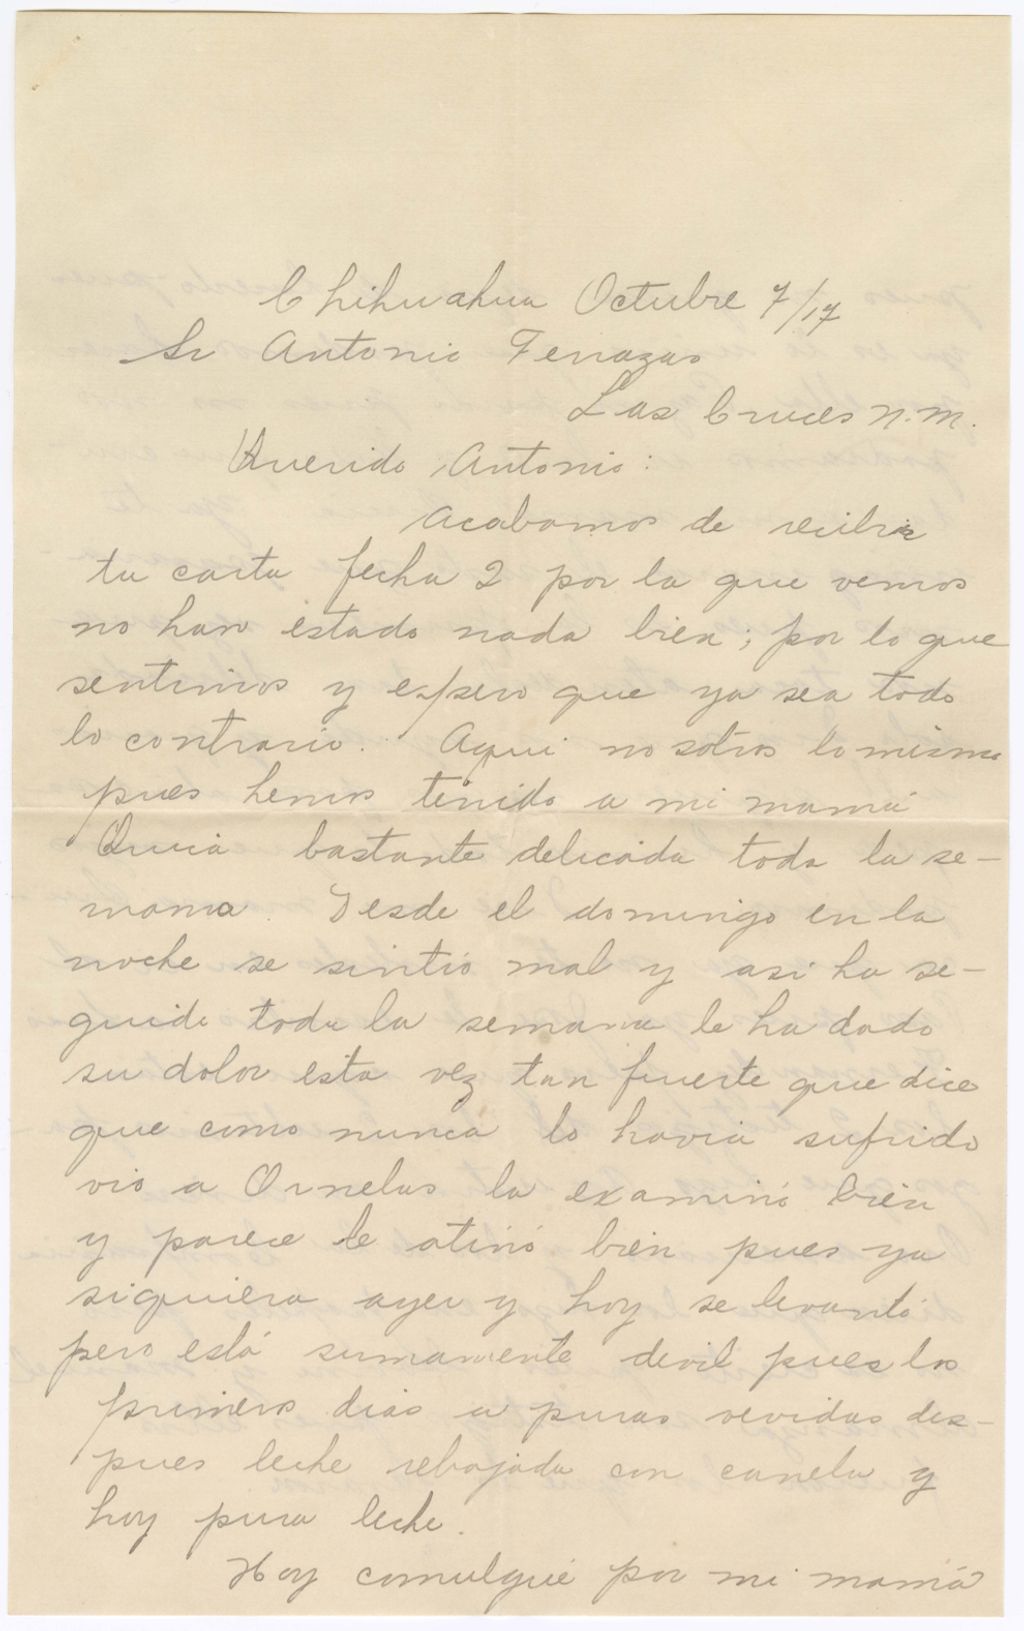 Chihuahua Octubre 7/17
Sr Antonio Terrazas
Las Cruces N.M.
Querido Antonio:
Acabamos de recibir
tu carta fecha 2 por la que vemos
no han estado nada bien; por lo que
sentimos y espero que ya sea todo
lo contrario. Aqui nosotros lo mismo
pues hemos tenido a mi mamá
bastante delicada toda la se-
mana. Desde el domingo en la
noche se sintió mal y asi ha se-
guido toda la semana le ha dado
su dolor esta vez tan fuerte que dice
que como nunca lo havia sufrido
vio a Ornelas la examinó bien
y parece le atinó bien pues ya
siquiera ayer y hoy se levantó
pero está sumamente devil pues los
primeros dias a puras vevidas des-
pues leche rebajada con canela y
hoy pura leche.
Hoy comulgué por mi mamá